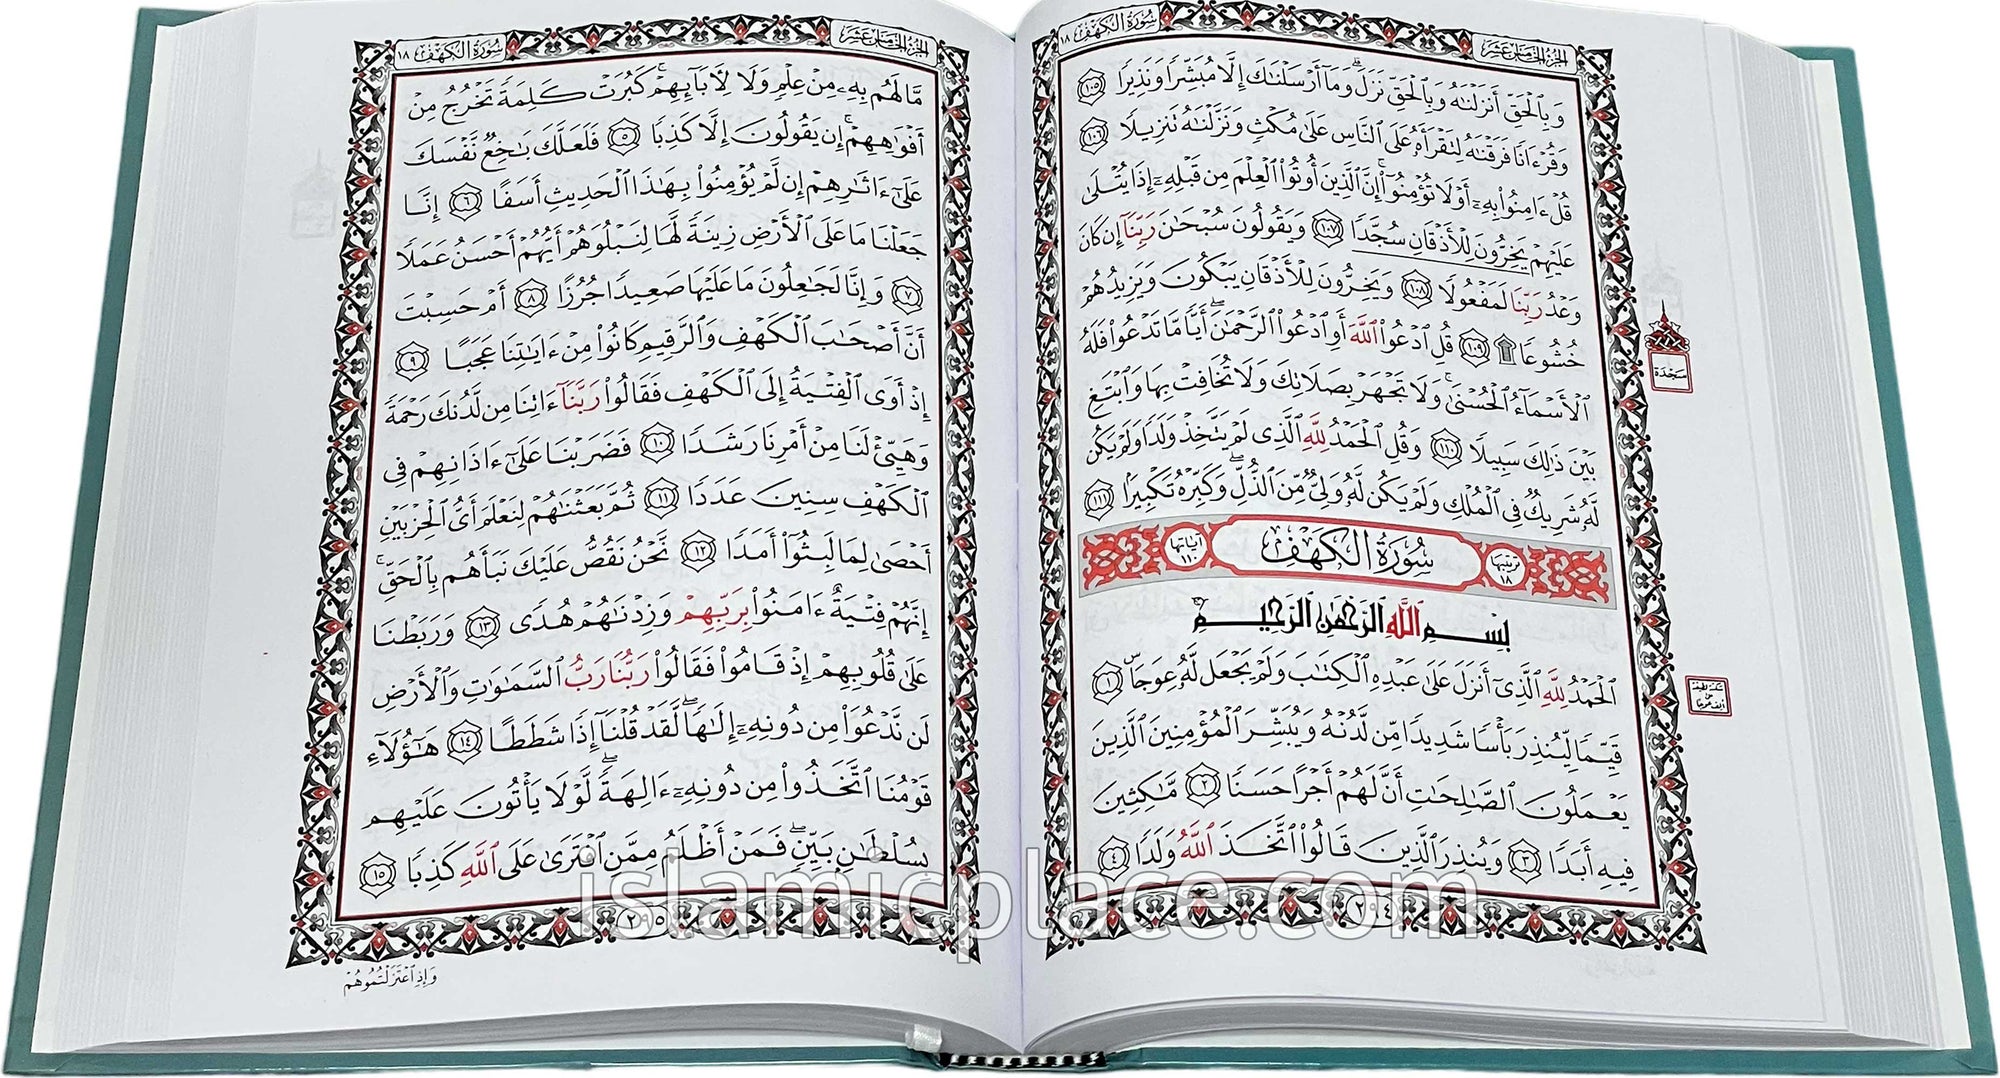 سُورَةُ الكَهْفِ ١٨
الجُزءُ الخَامِسَ عَشَرَ
وَبِٱلْحَقِّ أَنزَلْنَٰهُ وَبِٱلْحَقِّ نَزَلَ ۗ وَمَآ أَرْسَلْنَٰكَ إِلَّا مُبَشِّرًا وَنَذِيرًا ١٠٥
وَقُرْءَانًا فَرَقْنَٰهُ لِتَقْرَأَهُۥ عَلَى ٱلنَّاسِ عَلَىٰ مُكْثٍ وَنَزَّلْنَٰهُ تَنزِيلًا ١٠٦
قُلْ ءَامِنُوا۟ بِهِۦٓ أَوْ لَا تُؤْمِنُوٓا۟ ۚ إِنَّ ٱلَّذِينَ أُوتُوا۟ ٱلْعِلْمَ مِن قَبْلِهِۦٓ إِذَا يُتْلَىٰ
عَلَيْهِمْ يَخِرُّونَ لِلْأَذْقَانِ سُجَّدًا ١٠٧ وَيَقُولُونَ سُبْحَٰنَ رَبِّنَآ إِن كَانَ
وَعْدُ رَبِّنَا لَمَفْعُولًا ١٠٨ وَيَخِرُّونَ لِلْأَذْقَانِ يَبْكُونَ وَيَزِيدُهُمْ
خُشُوعًا ۩ ١٠٩ قُلِ ٱدْعُوا۟ ٱللَّهَ أَوِ ٱدْعُوا۟ ٱلرَّحْمَٰنَ ۖ أَيًّا مَّا تَدْعُوا۟ فَلَهُ
ٱلْأَسْمَآءُ ٱلْحُسْنَىٰ ۚ وَلَا تَجْهَرْ بِصَلَاتِكَ وَلَا تُخَافِتْ بِهَا وَٱبْتَغِ
بَيْنَ ذَٰلِكَ سَبِيلًا ١١٠ وَقُلِ ٱلْحَمْدُ لِلَّهِ ٱلَّذِى لَمْ يَتَّخِذْ وَلَدًا وَلَمْ يَكُن
لَّهُۥ شَرِيكٌ فِى ٱلْمُلْكِ وَلَمْ يَكُن لَّهُۥ وَلِىٌّ مِّنَ ٱلذُّلِّ ۖ وَكَبِّرْهُ تَكْبِيرًۢا ١١١
ترتيبها ١٨ سُورَةُ الكَهْفِ آياتها ١١٠
بِسْمِ ٱللَّهِ ٱلرَّحْمَٰنِ ٱلرَّحِيمِ
ٱلْحَمْدُ لِلَّهِ ٱلَّذِىٓ أَنزَلَ عَلَىٰ عَبْدِهِ ٱلْكِتَٰبَ وَلَمْ يَجْعَل لَّهُۥ عِوَجَا ۜ ١
قَيِّمًا لِّيُنذِرَ بَأْسًا شَدِيدًا مِّن لَّدُنْهُ وَيُبَشِّرَ ٱلْمُؤْمِنِينَ ٱلَّذِينَ
يَعْمَلُونَ ٱلصَّٰلِحَٰتِ أَنَّ لَهُمْ أَجْرًا حَسَنًا ٢ مَّٰكِثِينَ
فِيهِ أَبَدًا ٣ وَيُنذِرَ ٱلَّذِينَ قَالُوا۟ ٱتَّخَذَ ٱللَّهُ وَلَدًا ٤
٢٩٤
سَجْدَة
سكتة لطيفة
على
ألف عوجا
سُورَةُ الكَهْفِ ١٨
الجُزءُ الخَامِسَ عَشَرَ
مَّا لَهُم بِهِۦ مِنْ عِلْمٍ وَلَا لِأَبَآئِهِمْ ۚ كَبُرَتْ كَلِمَةً تَخْرُجُ مِنْ
أَفْوَٰهِهِمْ ۚ إِن يَقُولُونَ إِلَّا كَذِبًا ٥ فَلَعَلَّكَ بَٰخِعٌ نَّفْسَكَ
عَلَىٰٓ ءَاثَٰرِهِمْ إِن لَّمْ يُؤْمِنُوا۟ بِهَٰذَا ٱلْحَدِيثِ أَسَفًا ٦ إِنَّا
جَعَلْنَا مَا عَلَى ٱلْأَرْضِ زِينَةً لَّهَا لِنَبْلُوَهُمْ أَيُّهُمْ أَحْسَنُ عَمَلًا
٧ وَإِنَّا لَجَٰعِلُونَ مَا عَلَيْهَا صَعِيدًا جُرُزًا ٨ أَمْ حَسِبْتَ
أَنَّ أَصْحَٰبَ ٱلْكَهْفِ وَٱلرَّقِيمِ كَانُوا۟ مِنْ ءَايَٰتِنَا عَجَبًا ٩
إِذْ أَوَى ٱلْفِتْيَةُ إِلَى ٱلْكَهْفِ فَقَالُوا۟ رَبَّنَآ ءَاتِنَا مِن لَّدُنكَ رَحْمَةً
وَهَيِّئْ لَنَا مِنْ أَمْرِنَا رَشَدًا ١٠ فَضَرَبْنَا عَلَىٰٓ ءَاذَانِهِمْ فِى
ٱلْكَهْفِ سِنِينَ عَدَدًا ١١ ثُمَّ بَعَثْنَٰهُمْ لِنَعْلَمَ أَىُّ ٱلْحِزْبَيْنِ
أَحْصَىٰ لِمَا لَبِثُوٓا۟ أَمَدًا ١٢ نَّحْنُ نَقُصُّ عَلَيْكَ نَبَأَهُم بِٱلْحَقِّ ۚ
إِنَّهُمْ فِتْيَةٌ ءَامَنُوا۟ بِرَبِّهِمْ وَزِدْنَٰهُمْ هُدًى ١٣ وَرَبَطْنَا
عَلَىٰ قُلُوبِهِمْ إِذْ قَامُوا۟ فَقَالُوا۟ رَبُّنَا رَبُّ ٱلسَّمَٰوَٰتِ وَٱلْأَرْضِ
لَن نَّدْعُوَا۟ مِن دُونِهِۦٓ إِلَٰهًا ۖ لَّقَدْ قُلْنَآ إِذًا شَطَطًا ١٤ هَٰٓؤُلَآءِ
قَوْمُنَا ٱتَّخَذُوا۟ مِن دُونِهِۦٓ ءَالِهَةً ۖ لَّوْلَا يَأْتُونَ عَلَيْهِم
بِسُلْطَٰنٍۭ بَيِّنٍ ۖ فَمَنْ أَظْلَمُ مِمَّنِ ٱفْتَرَىٰ عَلَى ٱللَّهِ كَذِبًا ١٥
٢٩٥
وَإِذِ ٱعْتَزَلْتُمُوهُمْ
islamicplace.com